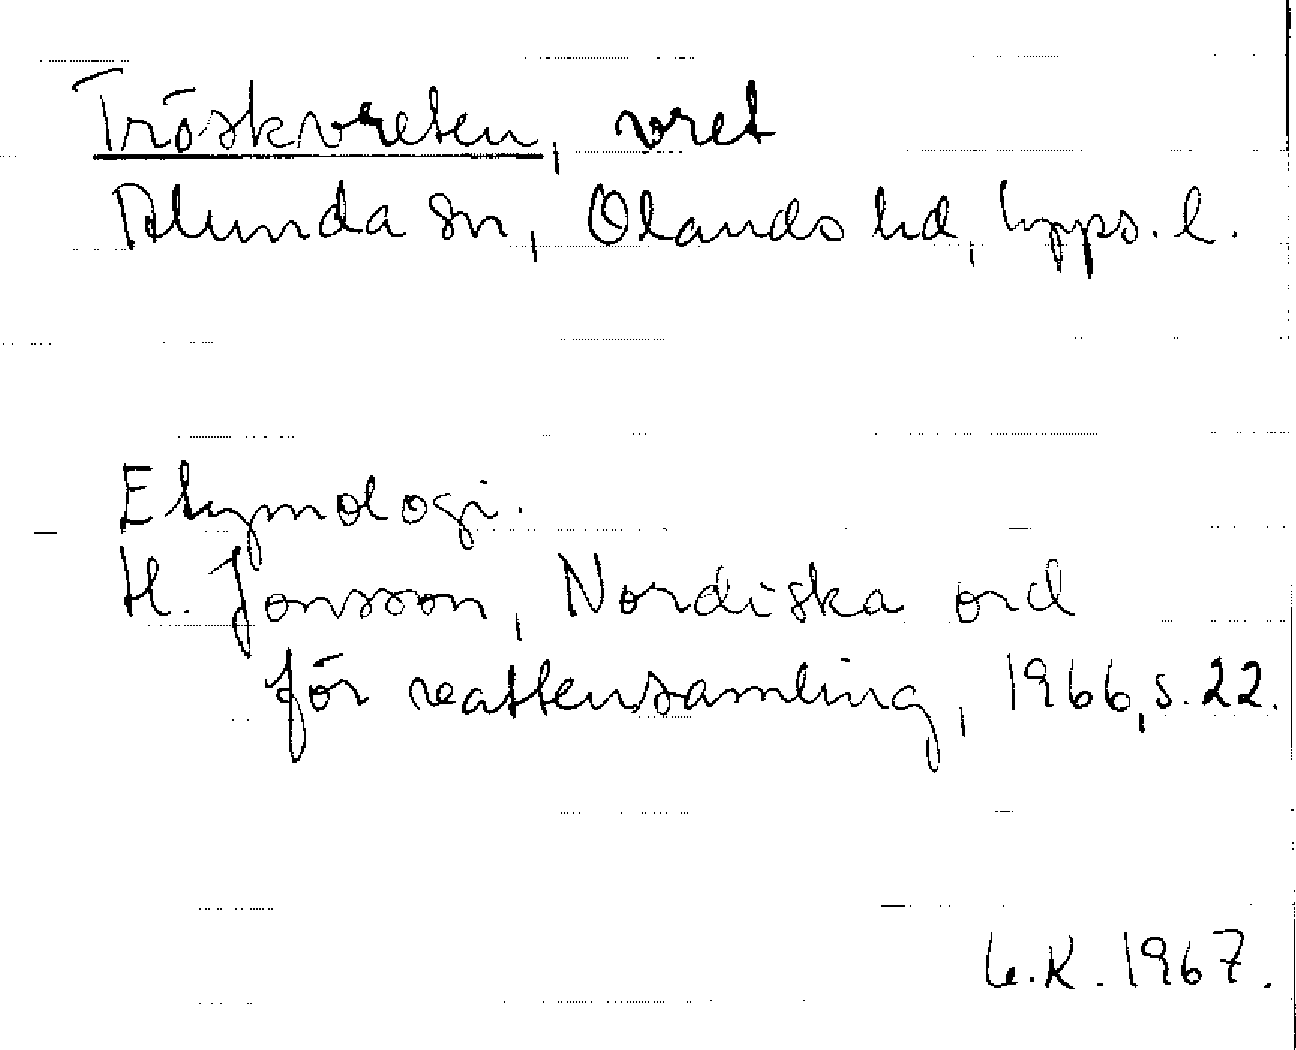 Tröskvreten, vret
Alunda sn, Olands hd, Upps. l.
Etymologi.
H. Jonsson, Nordiska ord
för vattensamling, 1966, s. 22.
K. 1967.